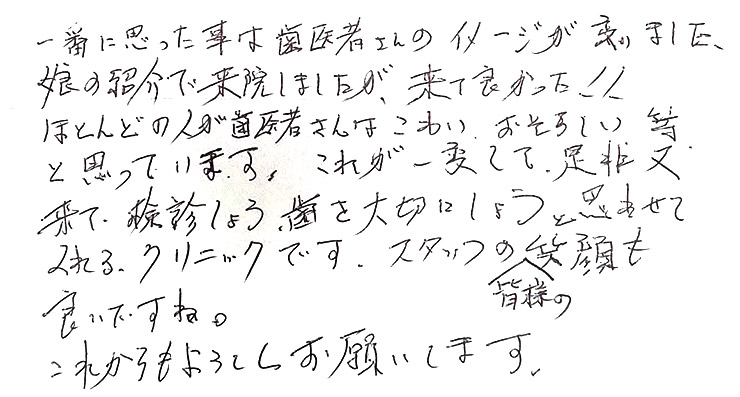 一番に思った事は歯医者さんのイメージが変りました、
娘の紹介で来院しましたが、来て良かった!!
ほとんどの人が歯医者さんはこわい、おそろしい等
と思っています。これが一変して、是非又
来て、検診しよう、歯を大切にしようと思わせて
くれる、クリニックです。スタッフの笑顔も
皆様の
良いですね。
これからもよろしくお願いします。